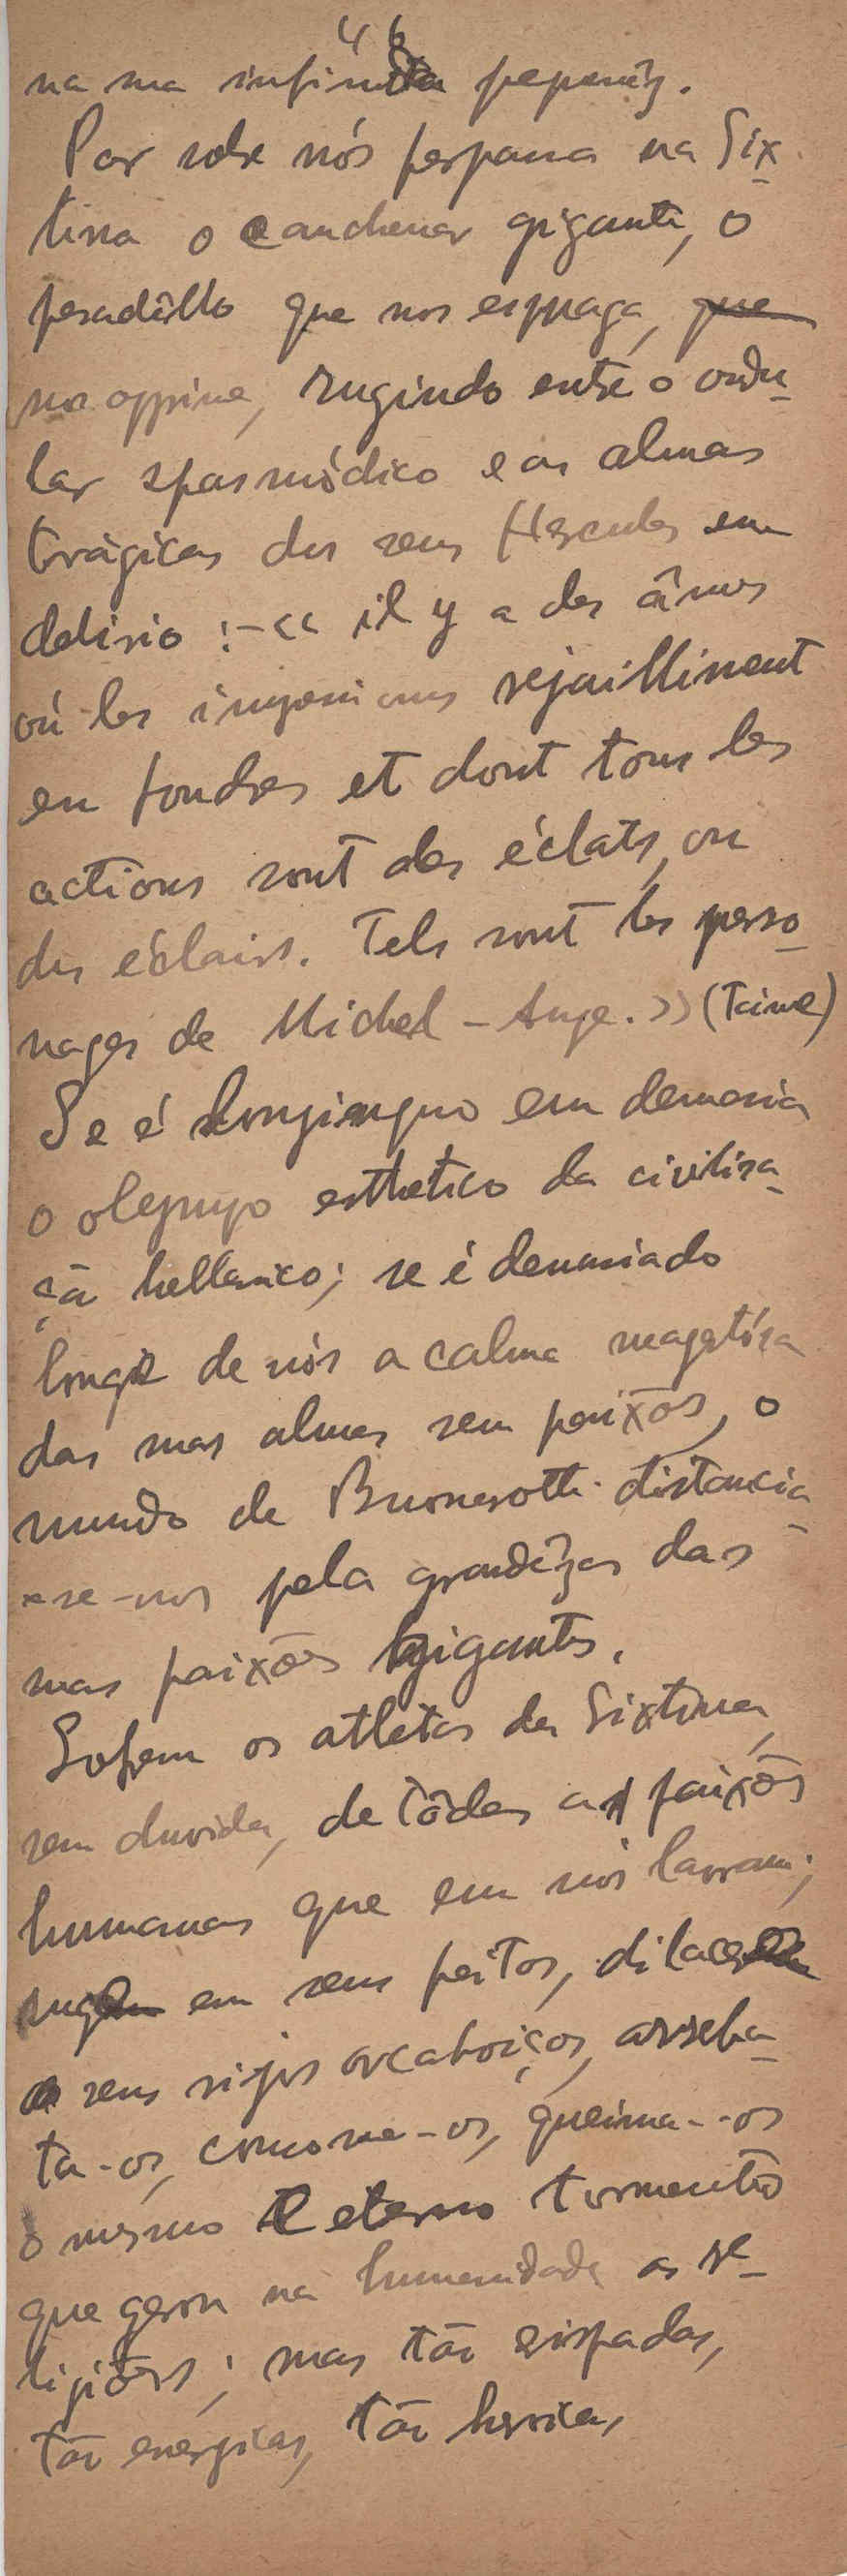 46
na sua infinita pequenêz.
Por sobre nós perpassa na Six-
tina o cauchemar gigante, o
pesadêllo que nos esmaga, que
nos opprime, rugindo entre o ondu-
lar spasmódico e as almas
trágicas dos seus Hercules em
delirio :-<< il y a des âmes
où les impressions rejaillissent
en foudres et dont tous les
actions sont des éclats, ou
des éclairs. Tels sont les perso-
nages de Michel-Ange. >> (Taine)
Se é longinquo em demasia
o esthetico da civilisa-
çã hellenico; se é demasiado
longe de nós a calma magestósa
das suas almas sem paixões, o
mundo de Buonarotti distancia-
-se-nos pela grandêza das
suas paixões gigantes.
Sofrem os atletas da Sixtina,
sem duvida, de tôdas as paixões
humanas que em nós lavram;
ruge em seus peitos, dilacera
seus rijos arcaboiços, arreba-
ta-os, consome-os, queima-os
o mesmo eterno tormento
que gerou na humanidade as re-
ligiões; mas tão crispadas,
tão energicas, tão heroicas